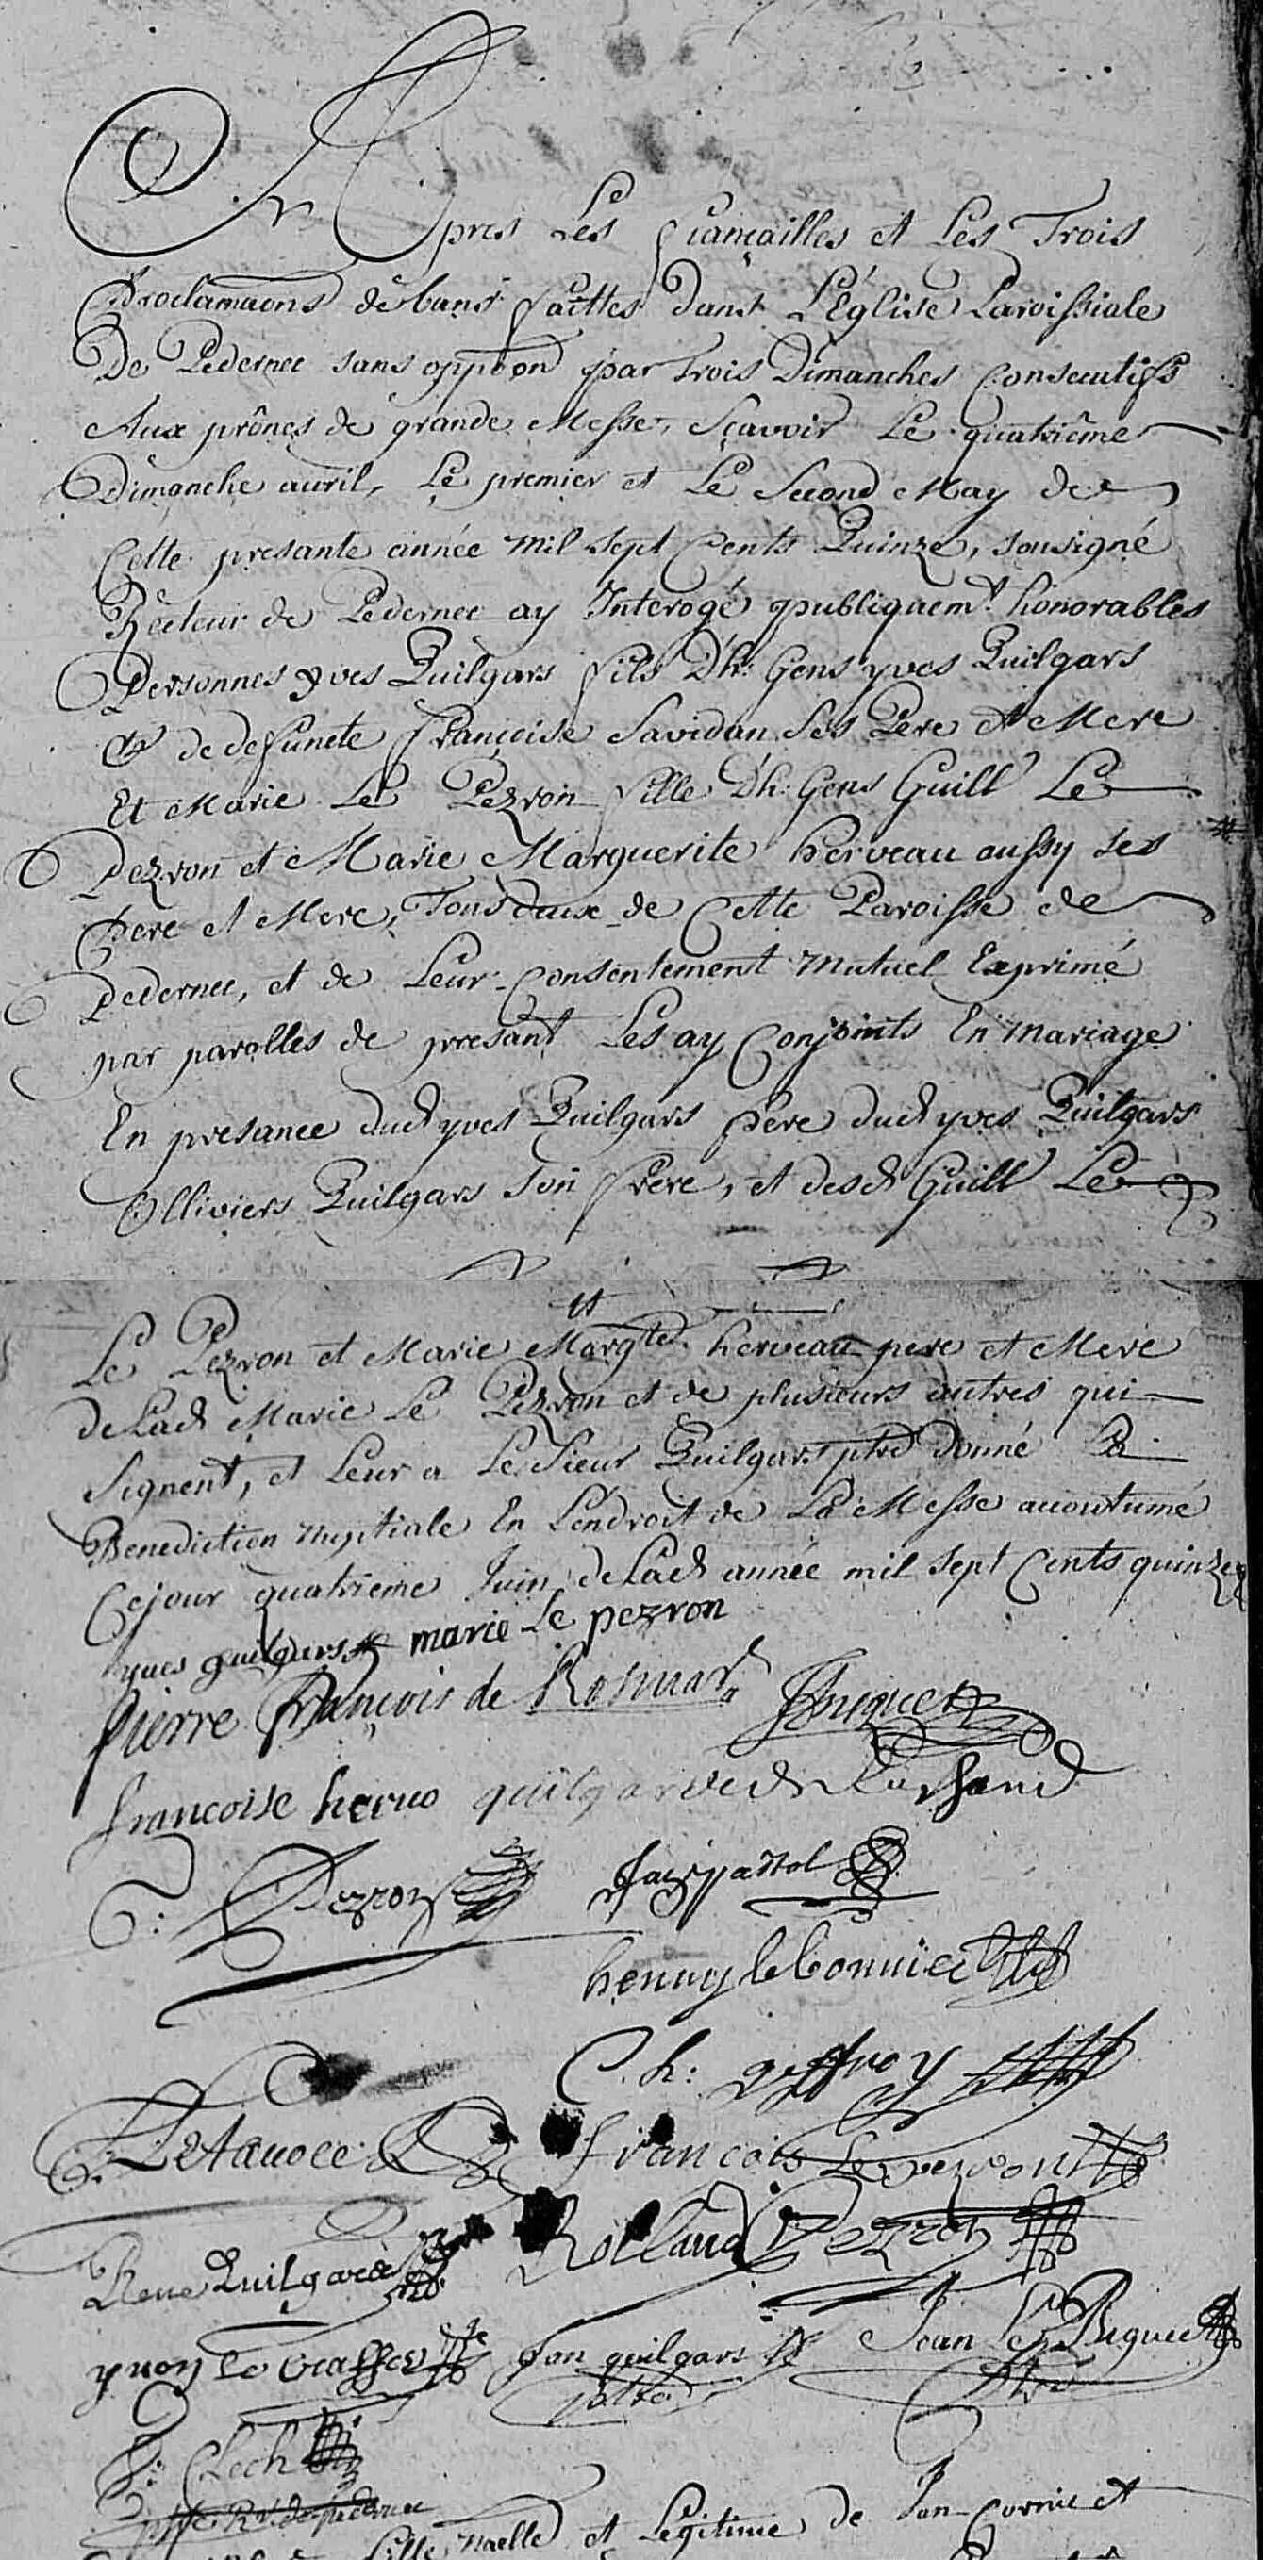 Apres Les fiançailles et Les Trois
Proclamaons de bans faittes dans L'Église Paroissiale
De Pedernec sans oppoon par Trois Dimanches Consecutifs
Aux prônes de grande Messe, Sçavoir Le quatriême
Dimanche auril, Le premier et Le Second May de
Cette presante année mil sept Cents Quinze, sousigné
Recteur de Pedernec ay Interogé publiquemt. honorables
Personnes yves Quilgars fils D'h: Gens yves Quilgars
& de defuncte Françoise Savidan Ses Pere et Mere
Et Marie Le Pezron fille D'h: Gens Guill Le
Pezron et Marie Marguerite herveau aussy ses
Pere et Mere, Tous deux de Cette Paroisse de
Pedernec, et de Leur Consentement Mutuel Exprimé
par parolles de presant Les ay Conjoints En mariage
En presance dud yves Quilgars Pere dud yves Quilgars
Olliviers Quilgars Son frere, et desd Guill Le
Le Pezron et Marie Margte herveau pere et Mere
de Lad Marie Le Pezron et de plusieurs autres qui
Signent, et Leur a Le Sieur Quilgars ptre donné La
Benediction nuptiale En L'endroit de La Messe acoutumé
Ce jour quatrieme Juin de Lad année mil sept Cents quinze
yues guilgars marie Le pezron
pierre François de Rosmar
francoise herno quilgars
G: Pezron
henry le bonniec
Ch: geffroy
Francois Le pezron
Rolland Pezron
Rene Quilgars
yuon Le Jan quilgars Jean Le Biguec
ptre
Clech
Rr de pedernec
Fille naelle et Legitime de Jan Cornic et